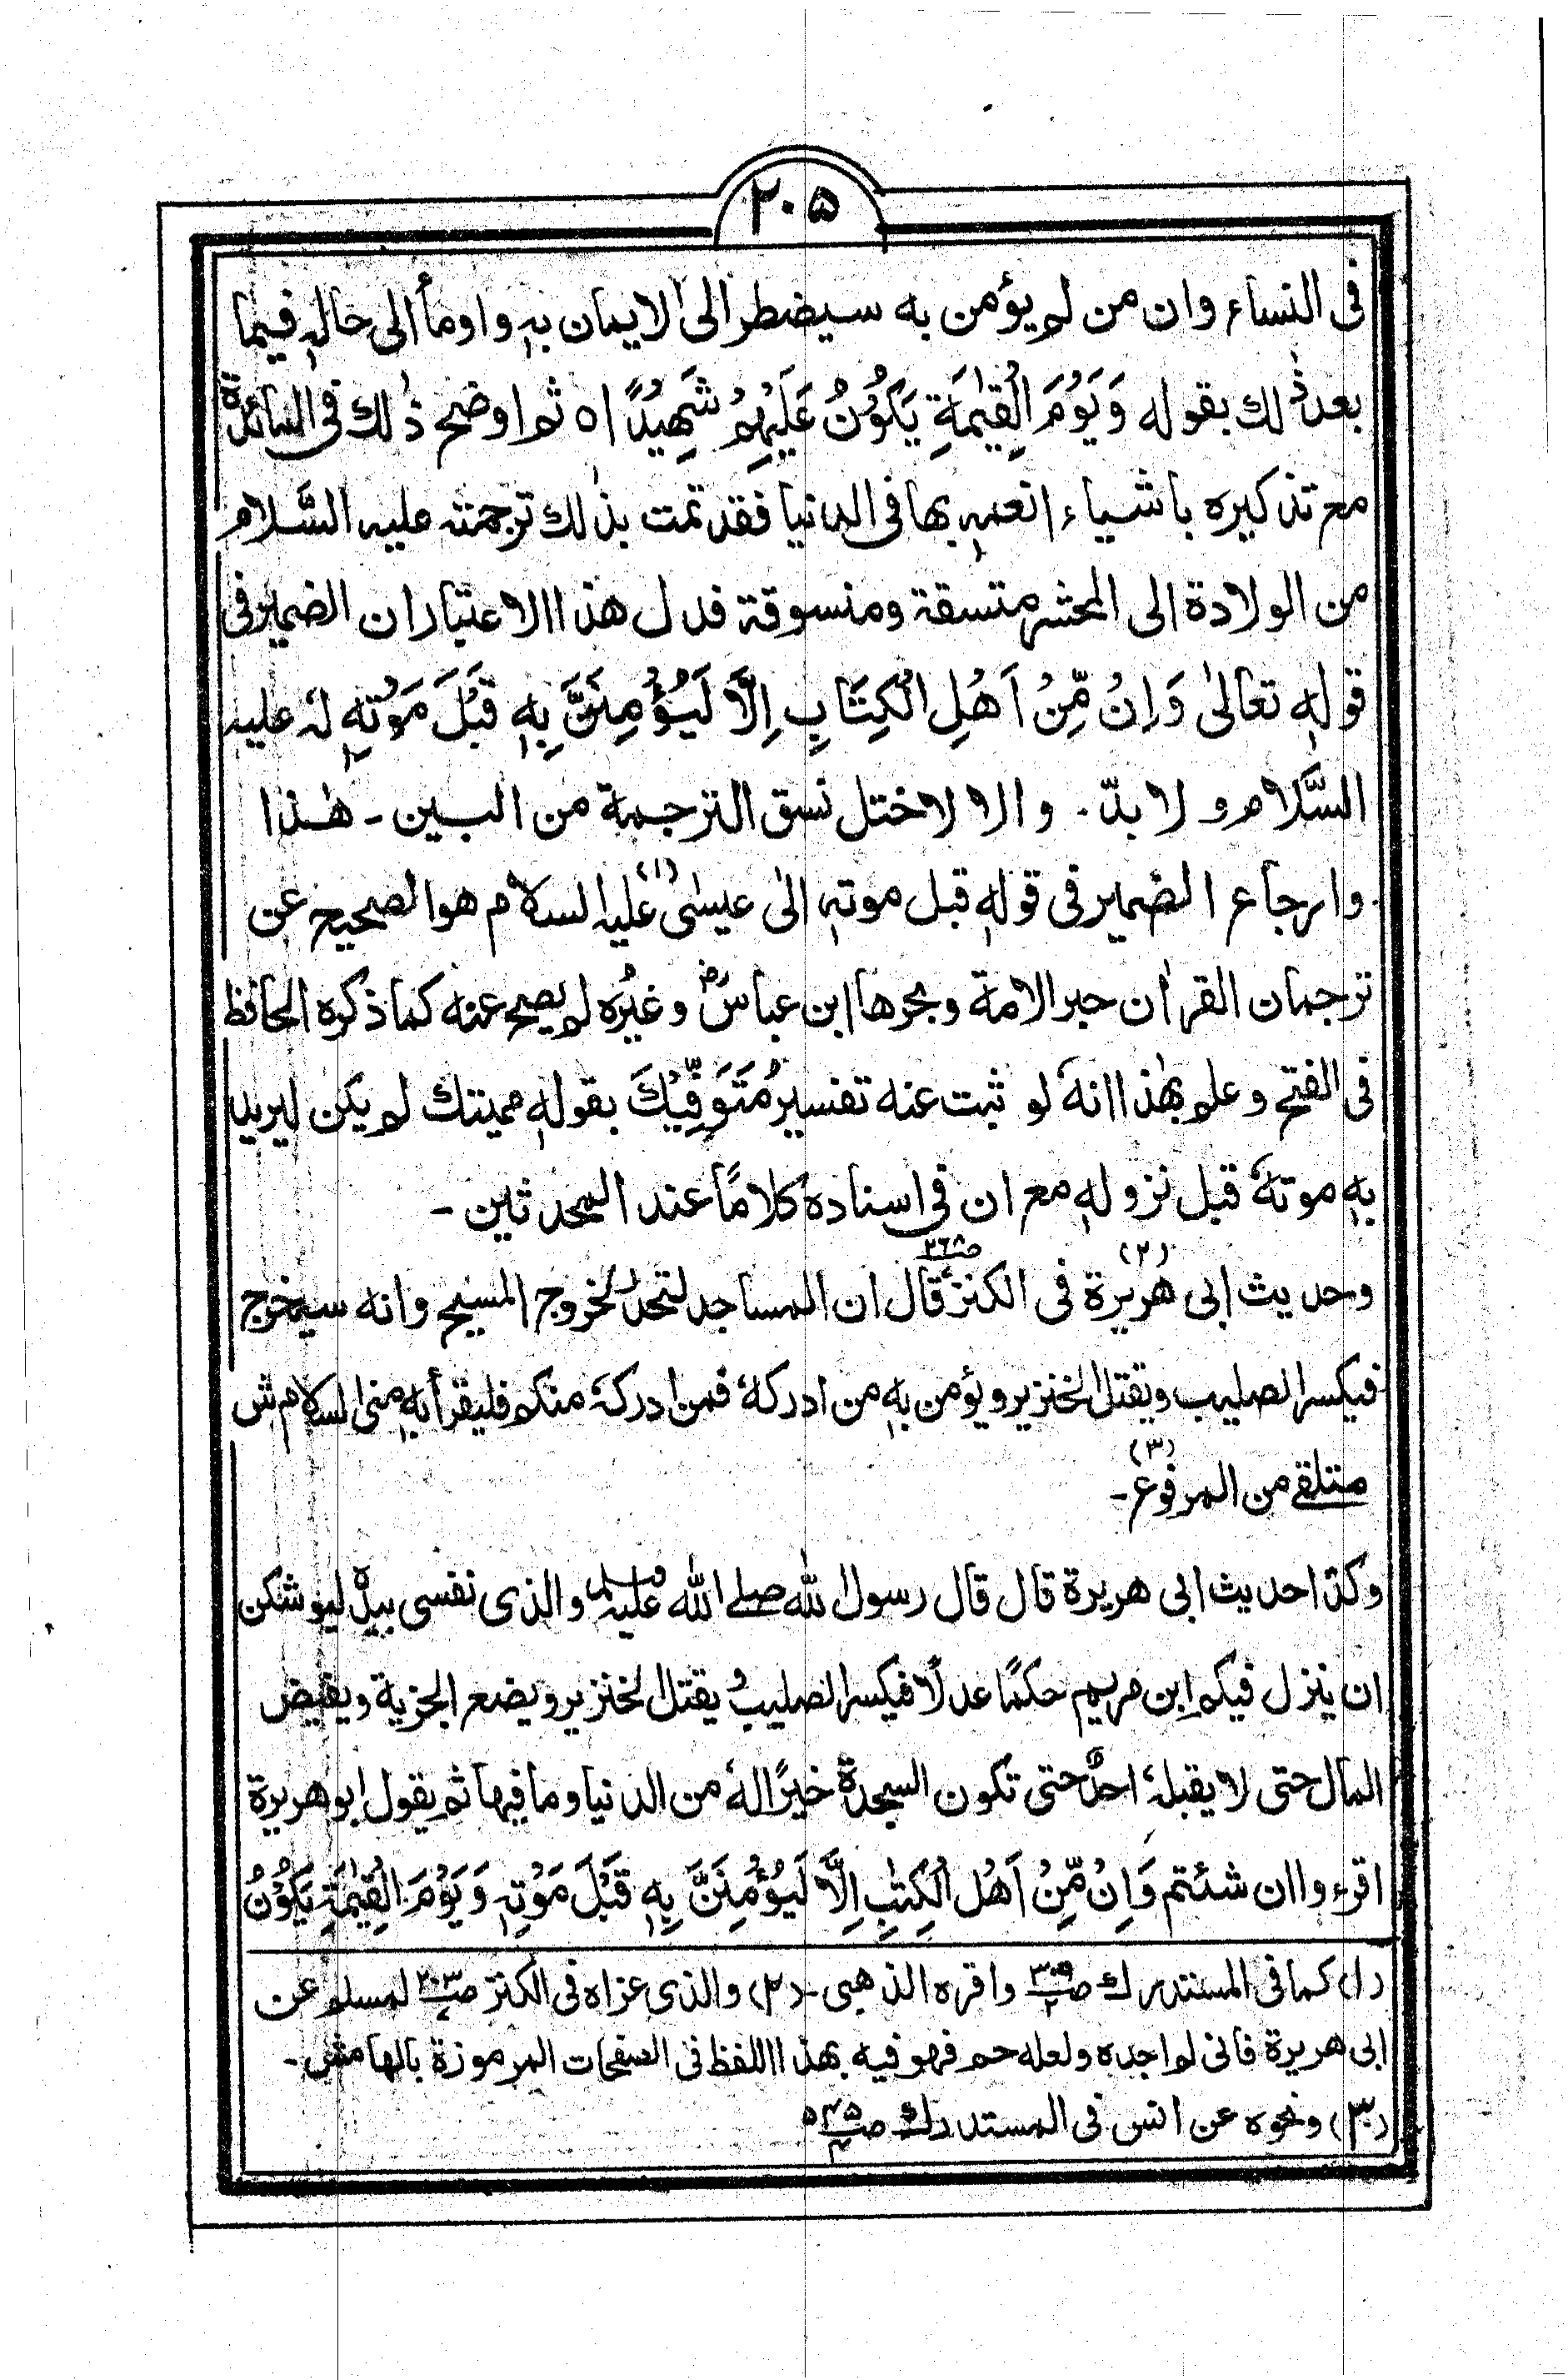 ٢٠٥
فى النساء وان من لم يؤمن به سيضطر الى الايمان بهٖ واومأ الى حالهٖ فيما
بعد ذٰلك بقوله وَيَوْمَ الْقِيٰمَةِ يَكُوْنُ عَلَيْهِمْ شَهِيْدًا اه ثم اوضح ذٰلك فى المائدة
مع تذكيره باشياء انعم بها فى الدنيا فقد تمت بذٰلك ترجمته عليه السَّلام
من الولادة الى المحشر متسقة ومنسوقة فدل هذا الاعتبار ان الضمير فى
قولهٖ تعالىٰ وَاِنْ مِّنْ اَهْلِ الْكِتَابِ اِلَّا لَيُؤْمِنَنَّ بِهٖ قَبْلَ مَوْتِهٖ لهٗ عليه
السَّلام و لا بدّ. والا لاختل نسق الترجمة من البين - هٰذا
وارجاع الضمير فى قولهٖ قبل موتهٖ الىٰ عيسٰى (١) عليه السلام هو الصحيح عن
ترجمان القراٰن حبر الامة وبحرها ابن عباسؓ وغيره لم يصح عنه كما ذكره الحافظ
فى الفتح وعلم بهٰذا انهٗ لو ثبت عنه تفسير مُتَوَفِّيْكَ بقولهٖ مميتك لم يكن ليريد
بهٖ موتهٗ قبل نزولهٖ مع ان فى اسناده كلامًا عند المحدثين -
وحديث ابى هريرة (٢) فى الكنز ص٢٦٨ قال ان المساجد لتحد لخروج المسيح وانه سيخرج
فيكسر الصليب ويقتل الخنزير ويؤمن بهٖ من ادركهٗ فمن ادركهٗ منكم فليقرأ بهٖ منى السلام ش
متلقے من المرفوع (٣) -
وكذا حديث ابى هريرة قال قال رسول الله صلے الله عليه وسلم والذى نفسى بيده ليوشكن
ان ينزل فيكم ابن مريم حكمًا عدلًا فيكسر الصليب و يقتل الخنزير ويضع الجزية ويفيض
المال حتى لا يقبلهٗ احدٌ حتى تكون السجدة خيرًا لهٗ من الدنيا وما فيها ثم يقول ابو هريرة
اقرءوا ان شئتم وَاِنْ مِّنْ اَهْلِ الْكِتٰبِ اِلَّا لَيُؤْمِنَنَّ بِهٖ قَبْلَ مَوْتِهٖ وَيَوْمَ الْقِيٰمَةِ يَكُوْنُ
(١) كما فى المستدرك ص٣٠٩/٢ واقره الذهبى - (٢) والذى عزاه فى الكنز ص٢٠٣ لمسلم عن
ابى هريرة فانى لم اجده ولعله حم فهو فيه بهذا اللفظ فى الصفحات المرموزة بالهامش -
(٣) ونحوه عن انس فى المستدرك ص٥٤٥/٤